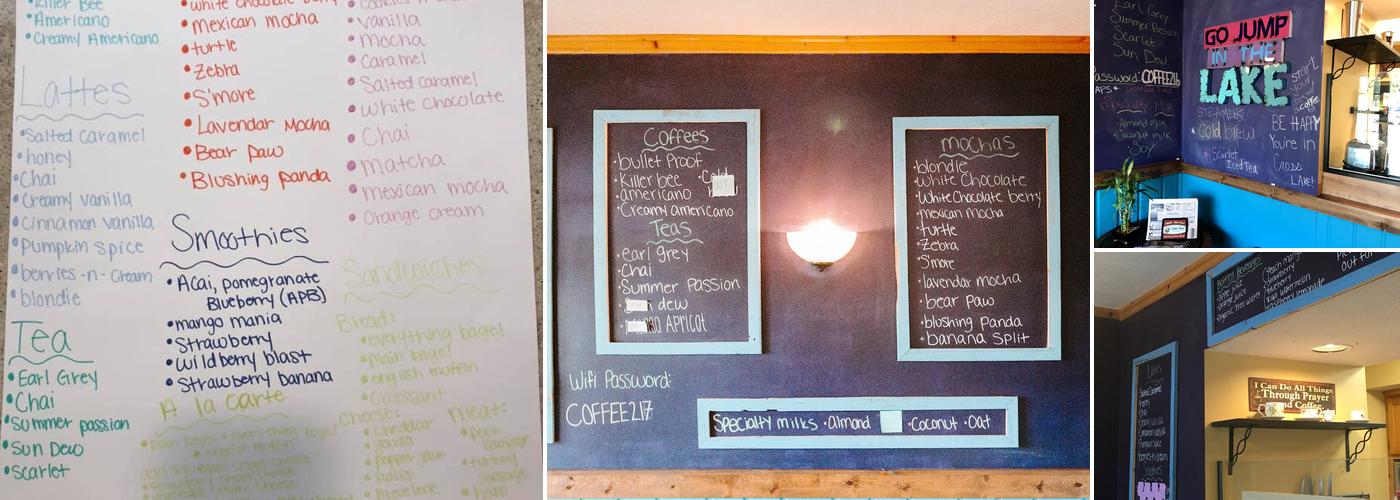 Killer Bee
• Americano
• Creamy Americano
Lattes
• Salted Caramel
• honey
• Chai
• Creamy vanilla
• Cinnamon vanilla
• Pumpkin Spice
• berries-n-Cream
• blondie
Tea
• Earl Grey
• Chai
• Summer passion
• Sun Dew
• Scarlet
• white chocolate berry
• mexican mocha
• turtle
• Zebra
• S'more
• Lavendar Mocha
• Bear Paw
• Blushing Panda
Smoothies
• Acai, pomegranate
Blueberry (APB)
• mango mania
• Strawberry
• wildberry blast
• Strawberry banana
A la carte
• vanilla
• Mocha
• Caramel
• Salted caramel
• White chocolate
• Chai
• Matcha
• mexican mocha
• orange cream
Sandwiches
Bread:
• everything bagel
• plain bagel
• english muffin
• Croissant
cheese:
• Cheddar
• gouda
• pepper jack
• Swiss
meat:
• pork
sausage
• turkey
sausage
• ham
Coffees
• bullet Proof
• Killer bee
• Cold
OUT
• americano
• Creamy americano
Teas
• earl grey
• Chai
• Summer Passion
dew
Apricot
mochas
• blondie
• white Chocolate
• White Chocolate berry
• mexican mocha
• turtle
• Zebra
• S'more
• lavendar mocha
• bear paw
• blushing panda
• banana split
Wifi Password:
COFFEE217
Specialty milks • Almond • Coconut • Oat
Earl Grey
Summer Passion
Scarlet
Sun Dew
Password: COFFEE217
Specialty Milk
• Almond milk
• Coconut milk
• Soy
GO JUMP
IN THE
LAKE
STEAMERS
Cold brew
• Scarlet
Iced Tea
start
your
coffee
BE HAPPY
You're in
Cross
LAKE!
• Peach mango
• Strawberry
• Blueberry
• Kiwi watermelon
• Raspberry lemonade
I Can Do All Things
Through Prayer
and Coffee
Lattes
Smoothies